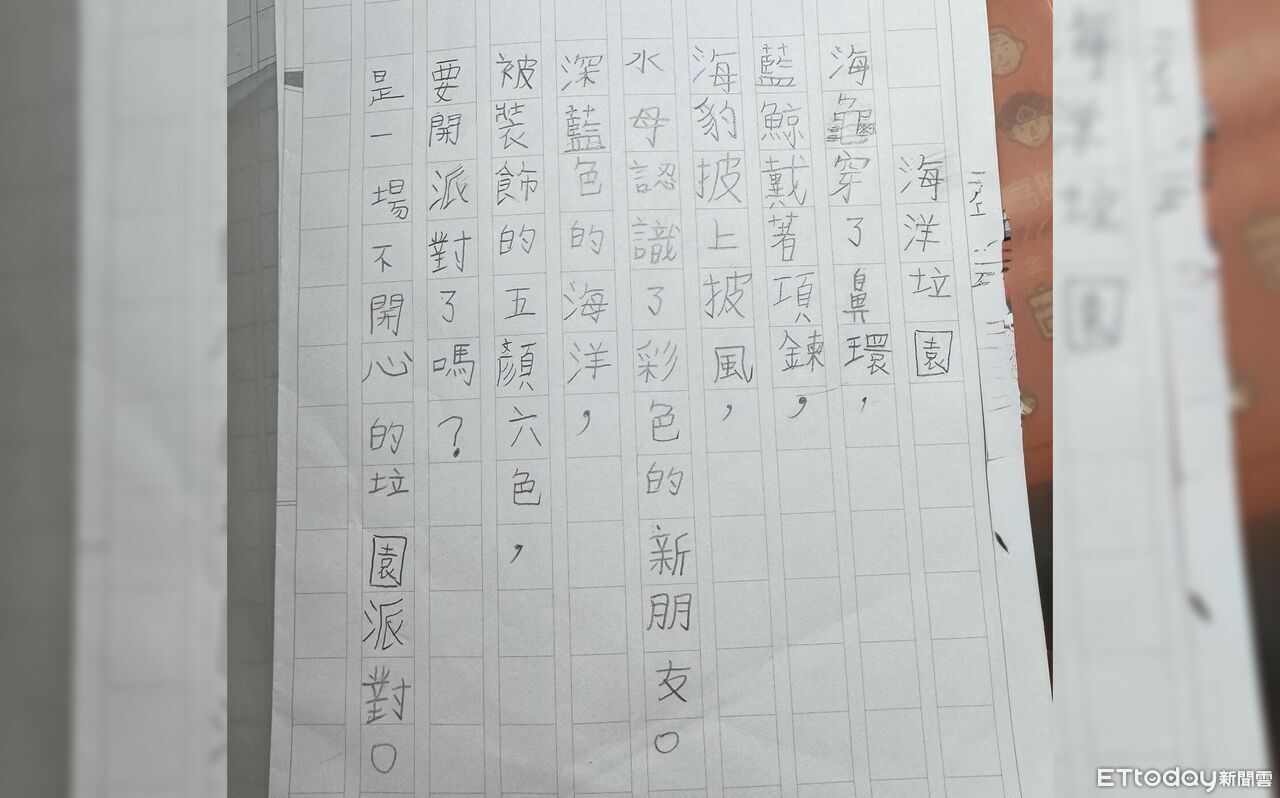 海洋垃園
海龜穿了鼻環，
藍鯨戴著項鍊，
海豹披上披風，
水母認識了彩色的新朋友。
深藍色的海洋，
被裝飾的五顏六色，
要開派對了嗎？
是一場不開心的垃園派對。
ETtoday新聞雲